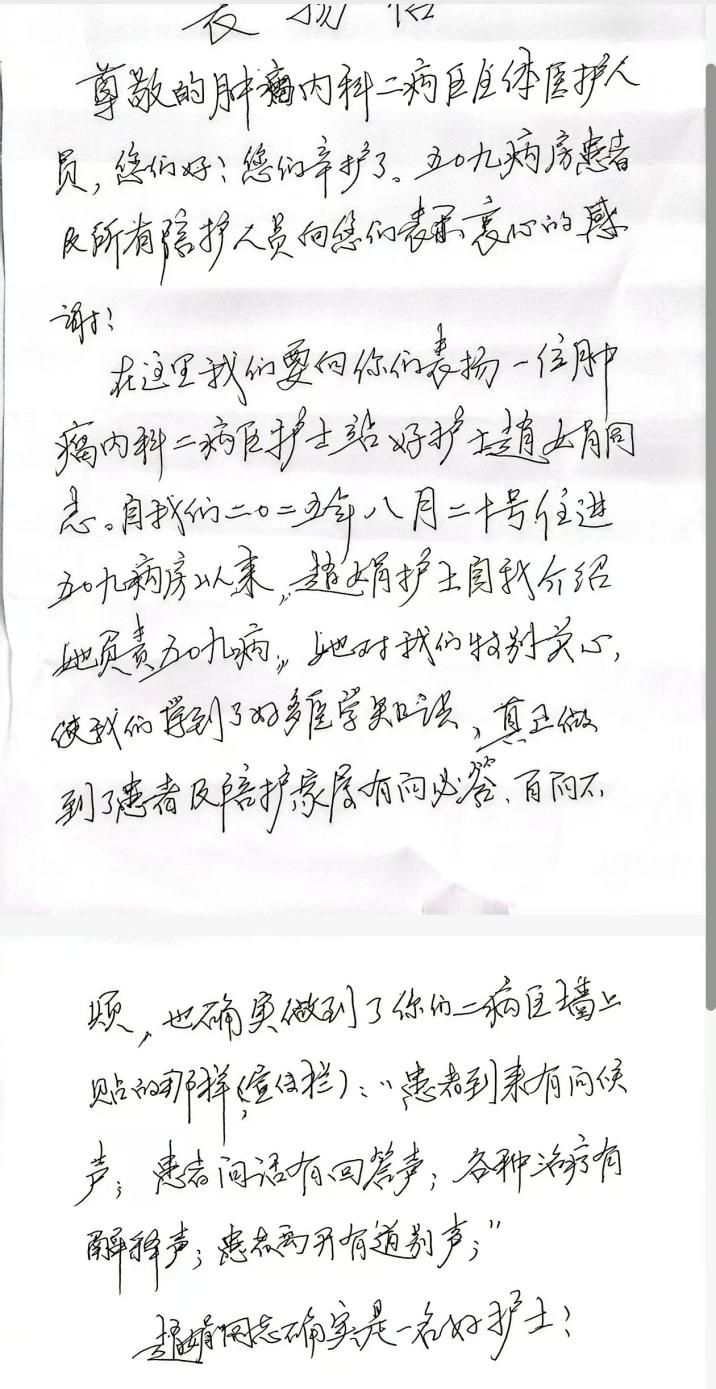 表扬信
尊敬的肿瘤内科二病区全体医护人
员,您们好!您们辛护了。五0九病房患者
及所有陪护人员向您们表示衷心的感
谢!
在这里我们要向你们表扬一位肿
瘤内科二病区护士站好护士赵娟同
志。自我们二0二五年八月二十号住进
五0九病房以来,赵娟护士自我介绍
她负责五0九病,她对我们特别关心,
使我们学到了好多医学知识,真正做
到了患者及陪护家属有问必答、百问不
烦,也确实做到了你们二病区墙上
贴的那样(宣传栏):“患者到来有问候
声;患者问话有回答声;各种治疗有
解释声;患者离开有道别声;”
赵娟同志确实是一名好护士!